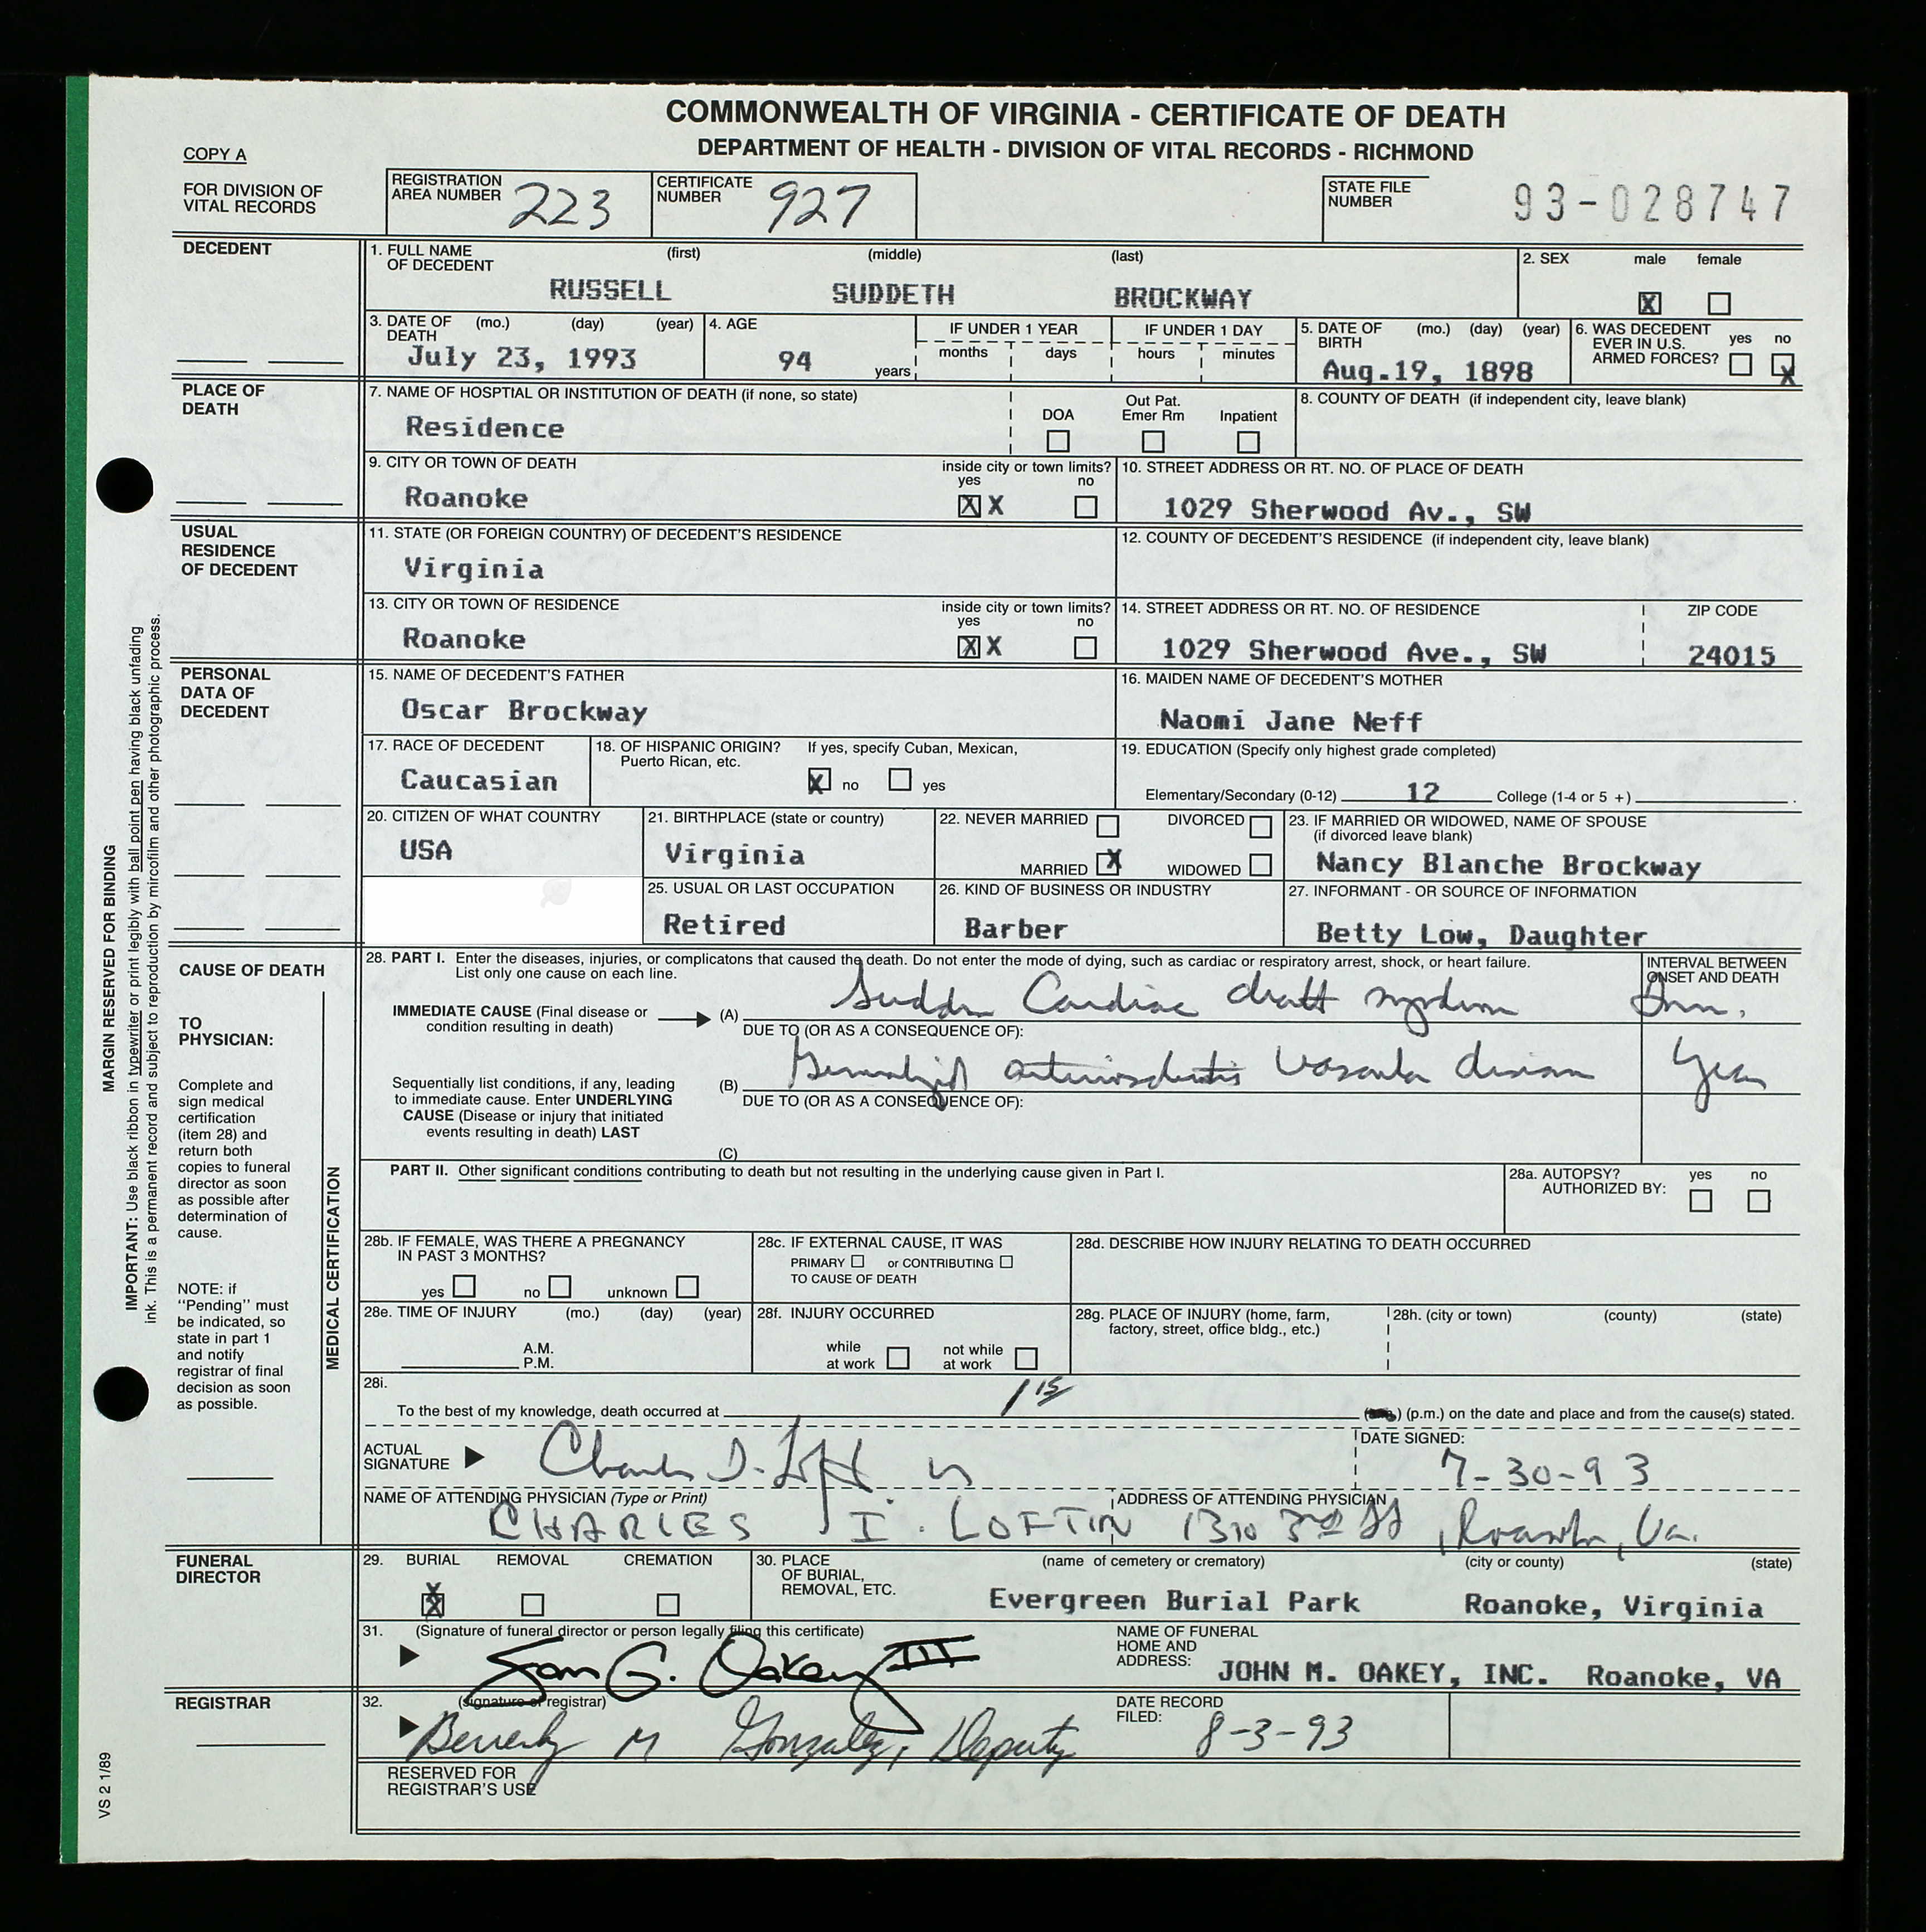 COMMONWEALTH OF VIRGINIA - CERTIFICATE OF DEATH
DEPARTMENT OF HEALTH - DIVISION OF VITAL RECORDS - RICHMOND
COPY A
FOR DIVISION OF
VITAL RECORDS
REGISTRATION
AREA NUMBER 223
CERTIFICATE
NUMBER 927
STATE FILE
NUMBER 93-028747
DECEDENT
1. FULL NAME
OF DECEDENT (first) (middle) (last)
RUSSELL SUDDETH BROCKWAY
2. SEX male female
X
3. DATE OF
DEATH (mo.) (day) (year)
July 23, 1993
4. AGE
94 years
IF UNDER 1 YEAR
months days
IF UNDER 1 DAY
hours minutes
5. DATE OF
BIRTH (mo.) (day) (year)
Aug.19, 1898
6. WAS DECEDENT
EVER IN U.S.
ARMED FORCES? yes no
X
PLACE OF
DEATH
7. NAME OF HOSPTIAL OR INSTITUTION OF DEATH (if none, so state)
Residence
DOA
Out Pat.
Emer Rm
Inpatient
8. COUNTY OF DEATH (if independent city, leave blank)
9. CITY OR TOWN OF DEATH
Roanoke
inside city or town limits?
yes no
X X
10. STREET ADDRESS OR RT. NO. OF PLACE OF DEATH
1029 Sherwood Av., SW
USUAL
RESIDENCE
OF DECEDENT
11. STATE (OR FOREIGN COUNTRY) OF DECEDENT'S RESIDENCE
Virginia
12. COUNTY OF DECEDENT'S RESIDENCE (if independent city, leave blank)
13. CITY OR TOWN OF RESIDENCE
Roanoke
inside city or town limits?
yes no
X X
14. STREET ADDRESS OR RT. NO. OF RESIDENCE
1029 Sherwood Ave., SW
ZIP CODE
24015
PERSONAL
DATA OF
DECEDENT
15. NAME OF DECEDENT'S FATHER
Oscar Brockway
16. MAIDEN NAME OF DECEDENT'S MOTHER
Naomi Jane Neff
17. RACE OF DECEDENT
Caucasian
18. OF HISPANIC ORIGIN? If yes, specify Cuban, Mexican,
Puerto Rican, etc.
X no yes
19. EDUCATION (Specify only highest grade completed)
Elementary/Secondary (0-12) 12 College (1-4 or 5 +)
20. CITIZEN OF WHAT COUNTRY
USA
21. BIRTHPLACE (state or country)
Virginia
22. NEVER MARRIED DIVORCED
MARRIED X WIDOWED
23. IF MARRIED OR WIDOWED, NAME OF SPOUSE
(if divorced leave blank)
Nancy Blanche Brockway
25. USUAL OR LAST OCCUPATION
Retired
26. KIND OF BUSINESS OR INDUSTRY
Barber
27. INFORMANT - OR SOURCE OF INFORMATION
Betty Low, Daughter
CAUSE OF DEATH
TO
PHYSICIAN:
Complete and
sign medical
certification
(item 28) and
return both
copies to funeral
director as soon
as possible after
determination of
cause.
NOTE: if
"Pending" must
be indicated, so
state in part 1
and notify
registrar of final
decision as soon
as possible.
MEDICAL CERTIFICATION
28. PART I. Enter the diseases, injuries, or complicatons that caused the death. Do not enter the mode of dying, such as cardiac or respiratory arrest, shock, or heart failure.
List only one cause on each line.
INTERVAL BETWEEN
ONSET AND DEATH
IMMEDIATE CAUSE (Final disease or
condition resulting in death)
(A) Sudden Cardiac death syndrome
DUE TO (OR AS A CONSEQUENCE OF):
Sequentially list conditions, if any, leading
to immediate cause. Enter UNDERLYING
CAUSE (Disease or injury that initiated
events resulting in death) LAST
(B) Generalized arteriosclerotic vascular disease
DUE TO (OR AS A CONSEQUENCE OF):
(C)
PART II. Other significant conditions contributing to death but not resulting in the underlying cause given in Part I.
28a. AUTOPSY?
AUTHORIZED BY: yes no
28b. IF FEMALE, WAS THERE A PREGNANCY
IN PAST 3 MONTHS?
yes no unknown
28c. IF EXTERNAL CAUSE, IT WAS
PRIMARY or CONTRIBUTING
TO CAUSE OF DEATH
28d. DESCRIBE HOW INJURY RELATING TO DEATH OCCURRED
28e. TIME OF INJURY (mo.) (day) (year)
A.M.
P.M.
28f. INJURY OCCURRED
while
at work
not while
at work
28g. PLACE OF INJURY (home, farm,
factory, street, office bldg., etc.)
28h. (city or town) (county) (state)
28i.
To the best of my knowledge, death occurred at 1 15 (p.m.) on the date and place and from the cause(s) stated.
ACTUAL
SIGNATURE
DATE SIGNED:
7-30-93
NAME OF ATTENDING PHYSICIAN (Type or Print)
CHARLES I. LOFTIN
ADDRESS OF ATTENDING PHYSICIAN
1310 3rd St, Roanoke, Va.
FUNERAL
DIRECTOR
29. BURIAL REMOVAL CREMATION
X
30. PLACE
OF BURIAL,
REMOVAL, ETC.
(name of cemetery or crematory) (city or county) (state)
Evergreen Burial Park Roanoke, Virginia
31. (Signature of funeral director or person legally filing this certificate)
Sam G. Oakey III
NAME OF FUNERAL
HOME AND
ADDRESS: JOHN M. OAKEY, INC. Roanoke, VA
REGISTRAR
32. (signature of registrar)
Beverly M Gonzalez, Deputy
DATE RECORD
FILED: 8-3-93
RESERVED FOR
REGISTRAR'S USE
MARGIN RESERVED FOR BINDING
IMPORTANT: Use black ribbon in typewriter or print legibly with ball point pen having black unfading
ink. This is a permanent record and subject to reproduction by mircofilm and other photographic process.
VS 2 1/89